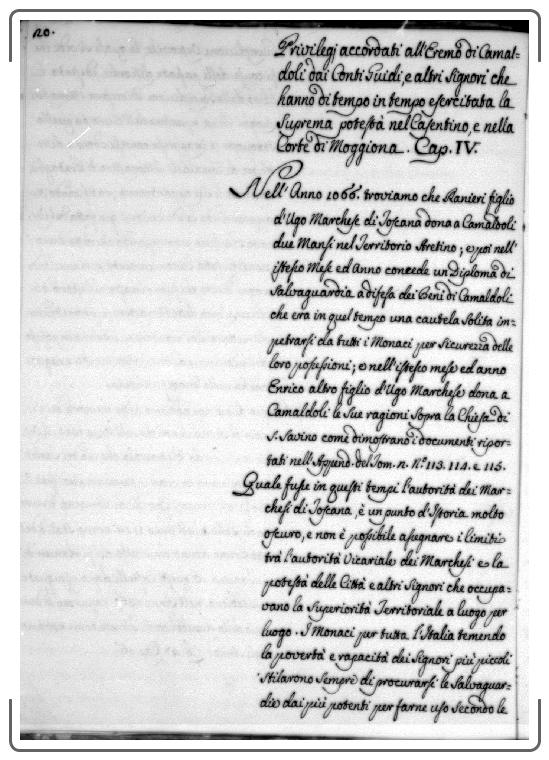 20.
Privilegj accordati all'Eremo di Camal=
doli dai Conti Guidi, e altri Signori che
hanno di tempo in tempo esercitata la
Suprema potestà nel Casentino, e nella
Corte di Moggiona. Cap. IV.
Nell'Anno 1066. troviamo che Ranieri figlio
d'Ugo Marchese di Toscana dona a Camaldoli
due Mansi nel Territorio Aretino; e poi nell'
istesso Mese ed Anno concede un Diploma di
Salvaguardia a difesa dei Beni di Camaldoli
che era in quel tempo una cautela solita im=
petrarsi da tutti i Monaci per sicurezza delle
loro possessioni; e nell'istesso mese ed anno
Enrico altro figlio d'Ugo Marchese dona a
Camaldoli le sue ragioni sopra la Chiesa di
S. Savino come dimostrano i documenti ripor=
tati nell'Append. del Tom. n. N.º 113. 114. e 115.
Quale fusse in questi tempi l'autorità dei Mar=
chesi di Toscana, è un punto d'Istoria molto
oscuro, e non è possibile assegnare i limiti
trà l'autorità Vicariale dei Marchesi e la
potestà delle Città e altri Signori che occupa=
vano la Superiorità Territoriale a luogo per
luogo. I Monaci per tutta l'Italia temendo
la povertà e rapacità dei Signori più piccoli
stilarono sempre di procurarsi le Salvaguar=
die dai più potenti per farne uso secondo le